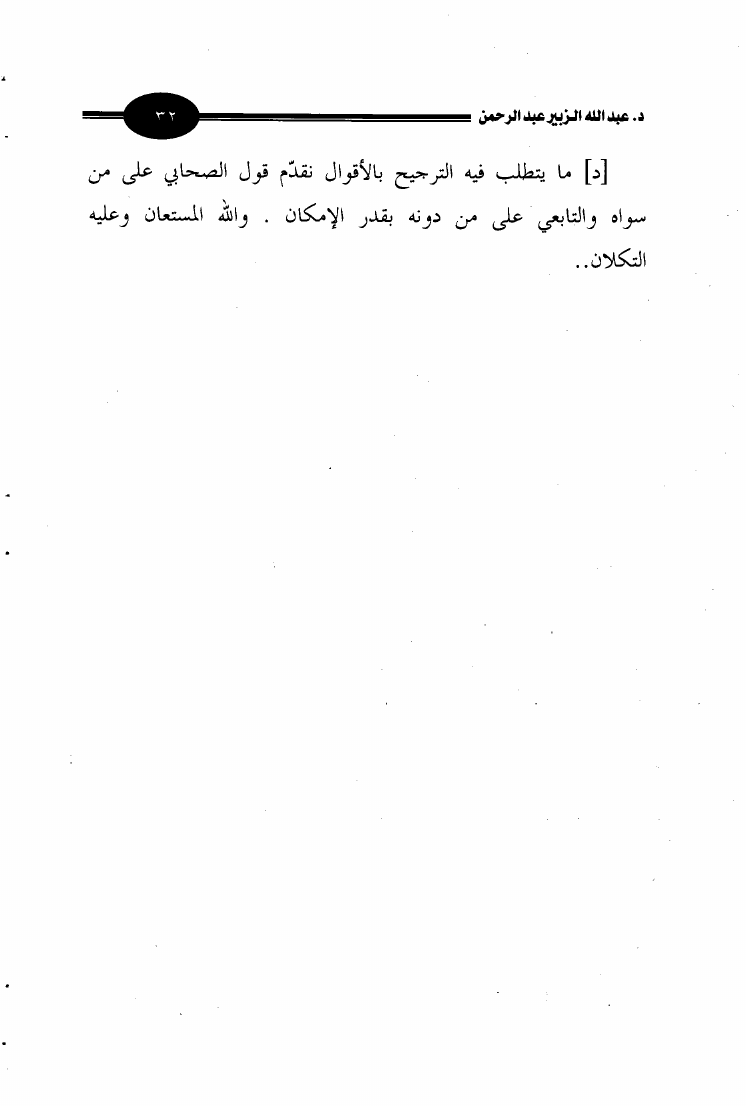 د. عبد الله الزبير عبد الرحمن ٣٢
[د] ما يتطلب فيه الترجيح بالأقوال نقدّم قول الصحابي على من
سواه والتابعي على من دونه بقدر الإمكان . والله المستعان وعليه
التكلان..